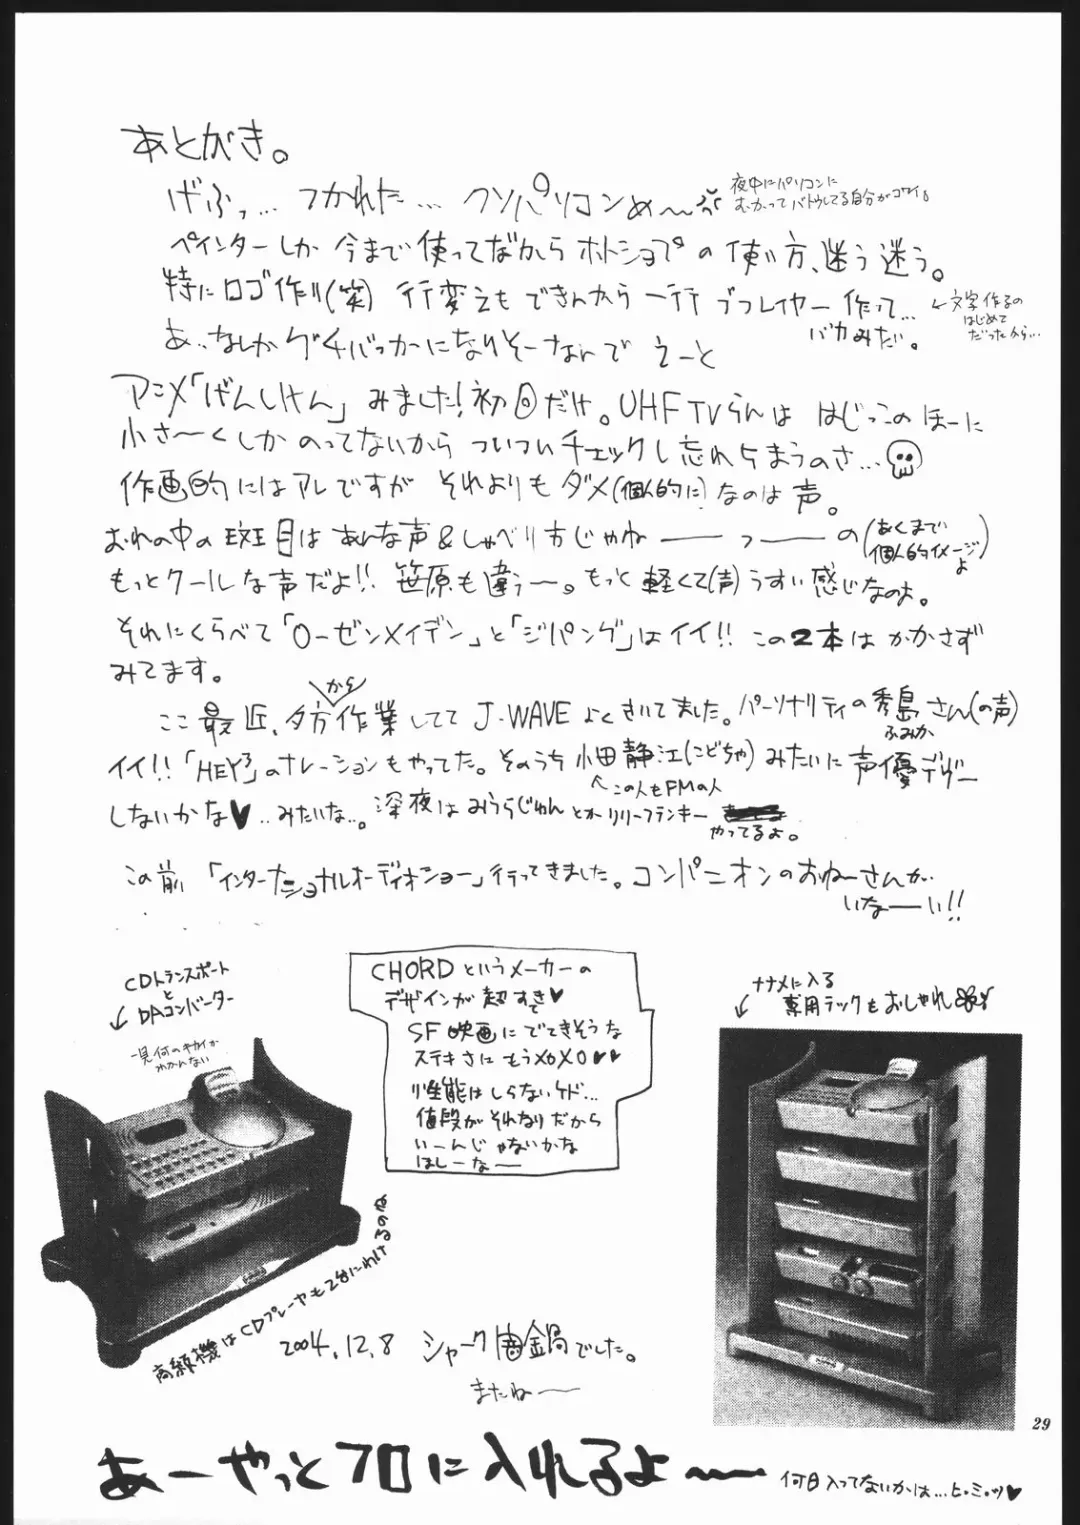 あとがき。
げふっ… つかれた… クソパソコンめ〜
夜中にパソコンに
むかってバトってる自分がコワイ。
ペインターしか今まで使ってなかったからホトショプの使い方、迷う迷う。
特にロゴ作り(笑) 行変えもできんから一行づつレイヤー作って…
バカみたい。
←文字作るの
はじめて
だったから…
あ…なんかグチばっかになりそーなんで えーと
アニメ「げんしけん」みました!初回だけ。UHF TVらんは はじっこのほーに
小さ〜くしか のってないから ついついチェックし忘れちまうのさ…
作画的にはアレですが それよりもダメ(個人的に)なのは声。
おれの中の斑目はあんな声&しゃべり方じゃねーーっーーの(あくまで
個人的イメージよ)
もっとクールな声だよ!! 笹原も違う〜。もっと軽くて(声)うすい感じなのよ。
それにくらべて「ローゼンメイデン」と「ジパング」はイイ!! この2本はかかさず
みてます。
ここ最近、夕方から作業してて J-WAVE よくきいてました。パーソナリティの秀島さん(の声)
ふみか
イイ!!「HEY³」のナレーションもやってた。そのうち小田静江(こどちゃ)みたいに声優デヴュー
↖この人もFMの人
しないかな♥‥みたいな‥。深夜はみうらじゅんとかリリーフランキー
やってるよ。
この前「インターナショナルオーディオショー」行ってきました。コンパニオンのおねーさんが
いなーーい!!
CDトランスポート
と
DAコンバーター
一見何のキカイか
わかんない
CHORDというメーカーの
デザインが超すき♥
SF映画にでてきそうな
ステキさにもうXOXO♥♥
性能はしらないケド…
値段がそれなりだから
いーんじゃないかな
ほしーなー
ナナメに入る
専用ラックもおしゃれ
高級機はCDプレーヤも2台にわけ
2004.12.8 シャーク闇鍋でした。
またね〜
29
あーやっとフロに入れるよ〜〜
何日入ってないかは…ヒ・ミ・ツ♥